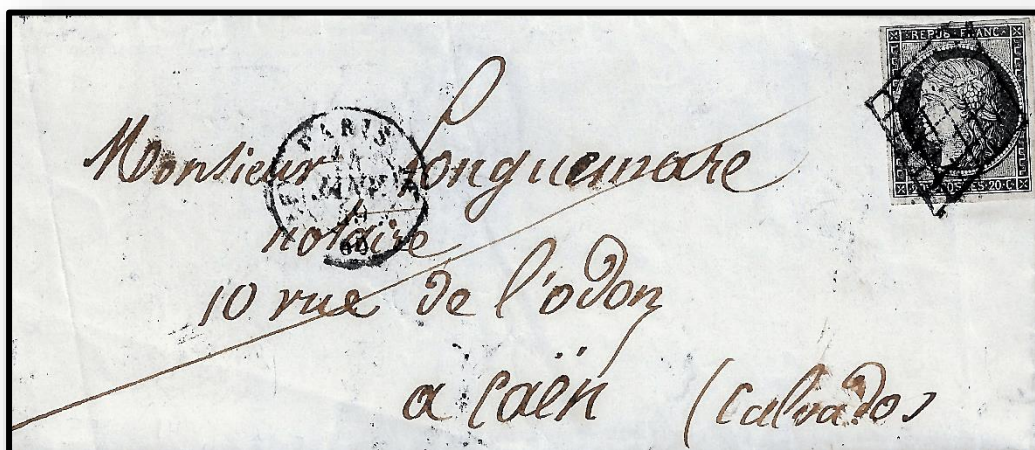 REPUB. FRANC.
20.C POSTES.20.C
PARIS
JANV
60
Monsieur Longuemare
notaire
10 rue de l'odon
a Caën (Calvados